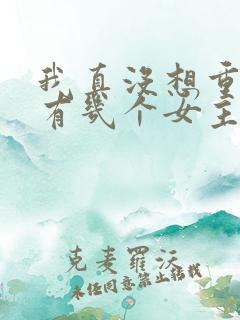 我真没想重
有几个女主
克麦罗沃
未经同意禁止转载